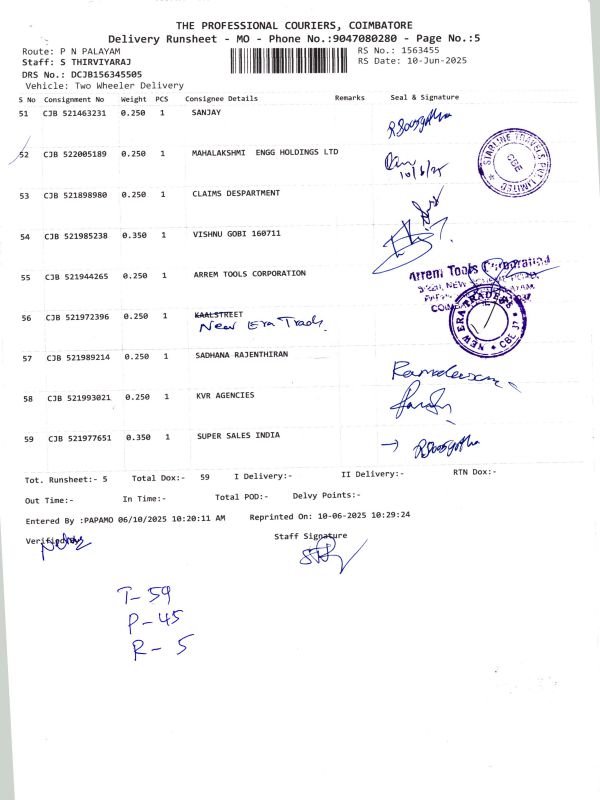 THE PROFESSIONAL COURIERS, COIMBATORE
Delivery Runsheet - MO - Phone No.:9047080280 - Page No.:5
Route: P N PALAYAM RS No.: 1563455
Staff: S THIRVIYARAJ RS Date: 10-Jun-2025
DRS No.: DCJB156345505
Vehicle: Two Wheeler Delivery
S No Consignment No Weight PCS Consignee Details Remarks Seal & Signature
51 CJB 521463231 0.250 1 SANJAY
52 CJB 522005189 0.250 1 MAHALAKSHMI ENGG HOLDINGS LTD 10/6/25 STARLINE TRAVELS PVT LIMITED CBE
53 CJB 521898980 0.250 1 CLAIMS DESPARTMENT
54 CJB 521985238 0.350 1 VISHNU GOBI 160711
55 CJB 521944265 0.250 1 ARREM TOOLS CORPORATION Arrem Tools Corporation
56 CJB 521972396 0.250 1 KAALSTREET NEW ERA TRADERS CBE 37
New Era Trads.
57 CJB 521989214 0.250 1 SADHANA RAJENTHIRAN
58 CJB 521993021 0.250 1 KVR AGENCIES
59 CJB 521977651 0.350 1 SUPER SALES INDIA →
Tot. Runsheet:- 5 Total Dox:- 59 I Delivery:- II Delivery:- RTN Dox:-
Out Time:- In Time:- Total POD:- Delvy Points:-
Entered By :PAPAMO 06/10/2025 10:20:11 AM Reprinted On: 10-06-2025 10:29:24
Verified By Staff Signature
T- 59
P- 45
R- 5